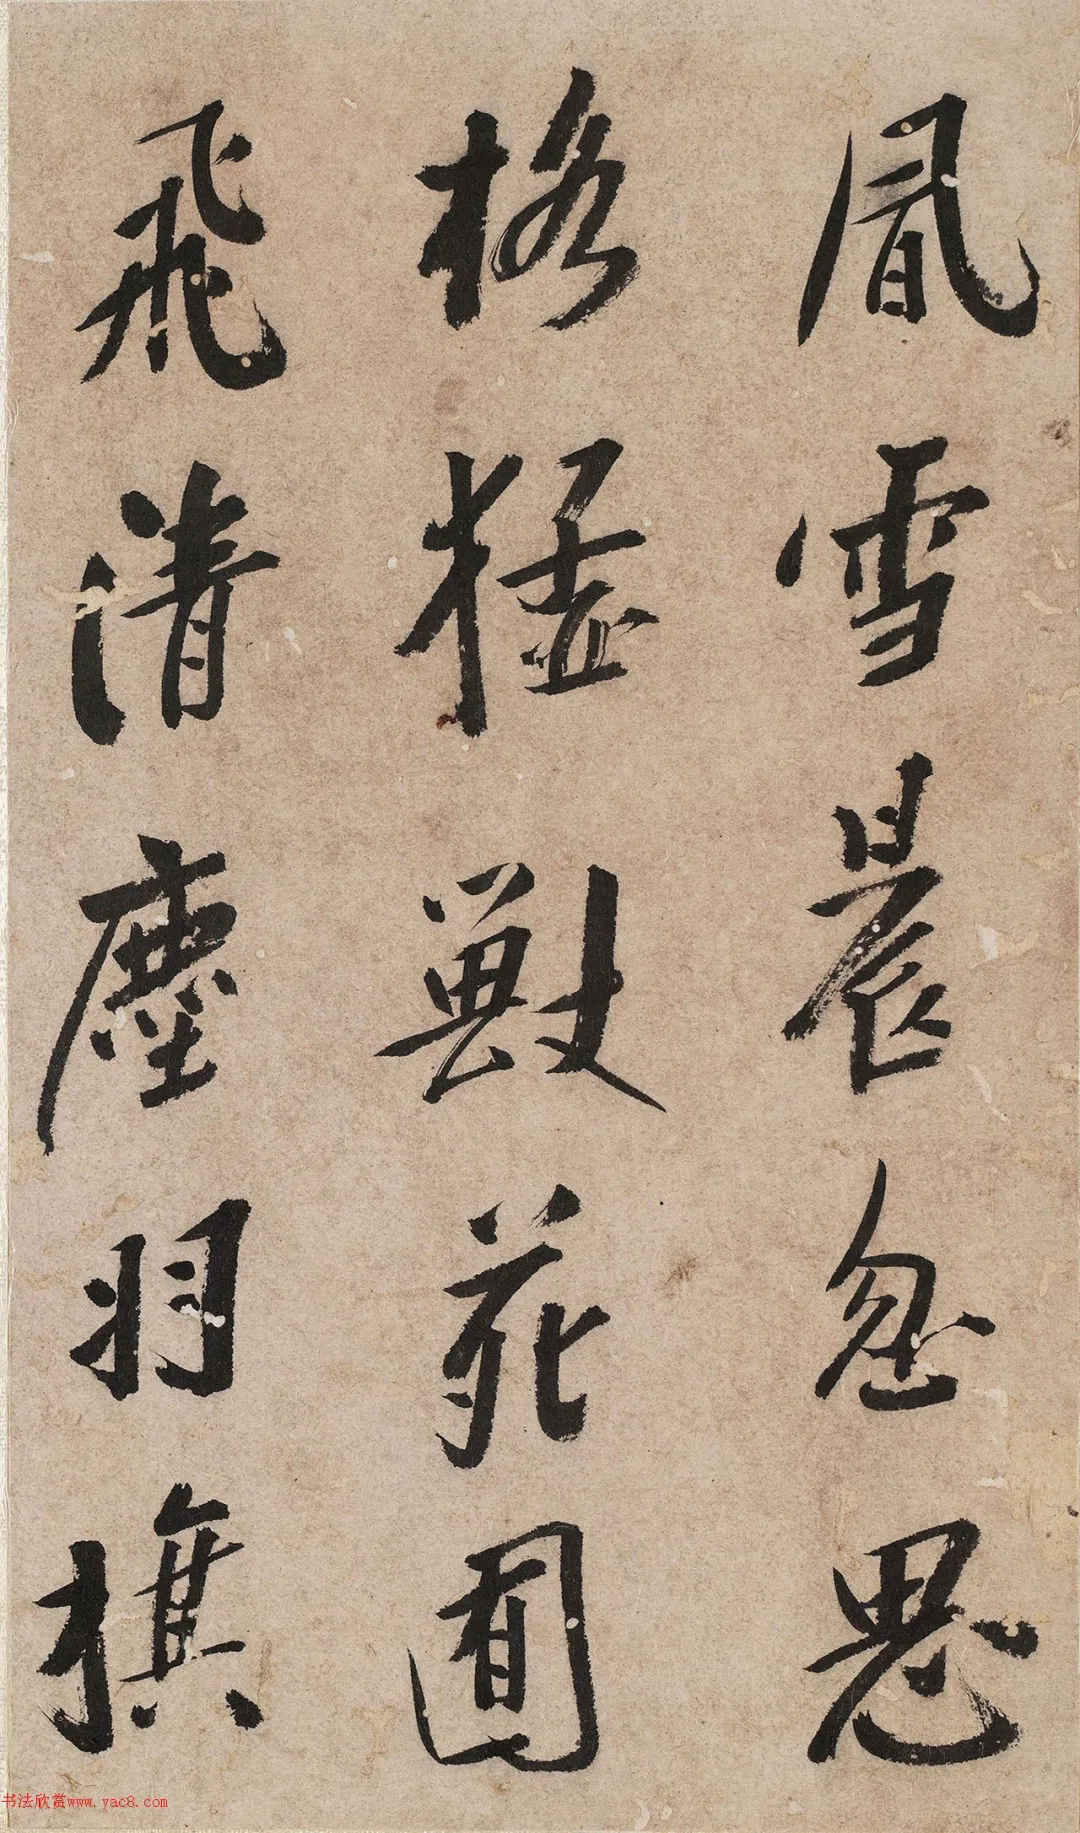 風雪晨忽思
格猛獸苑囿
飛清塵羽旗
书法欣赏www.yac8.com